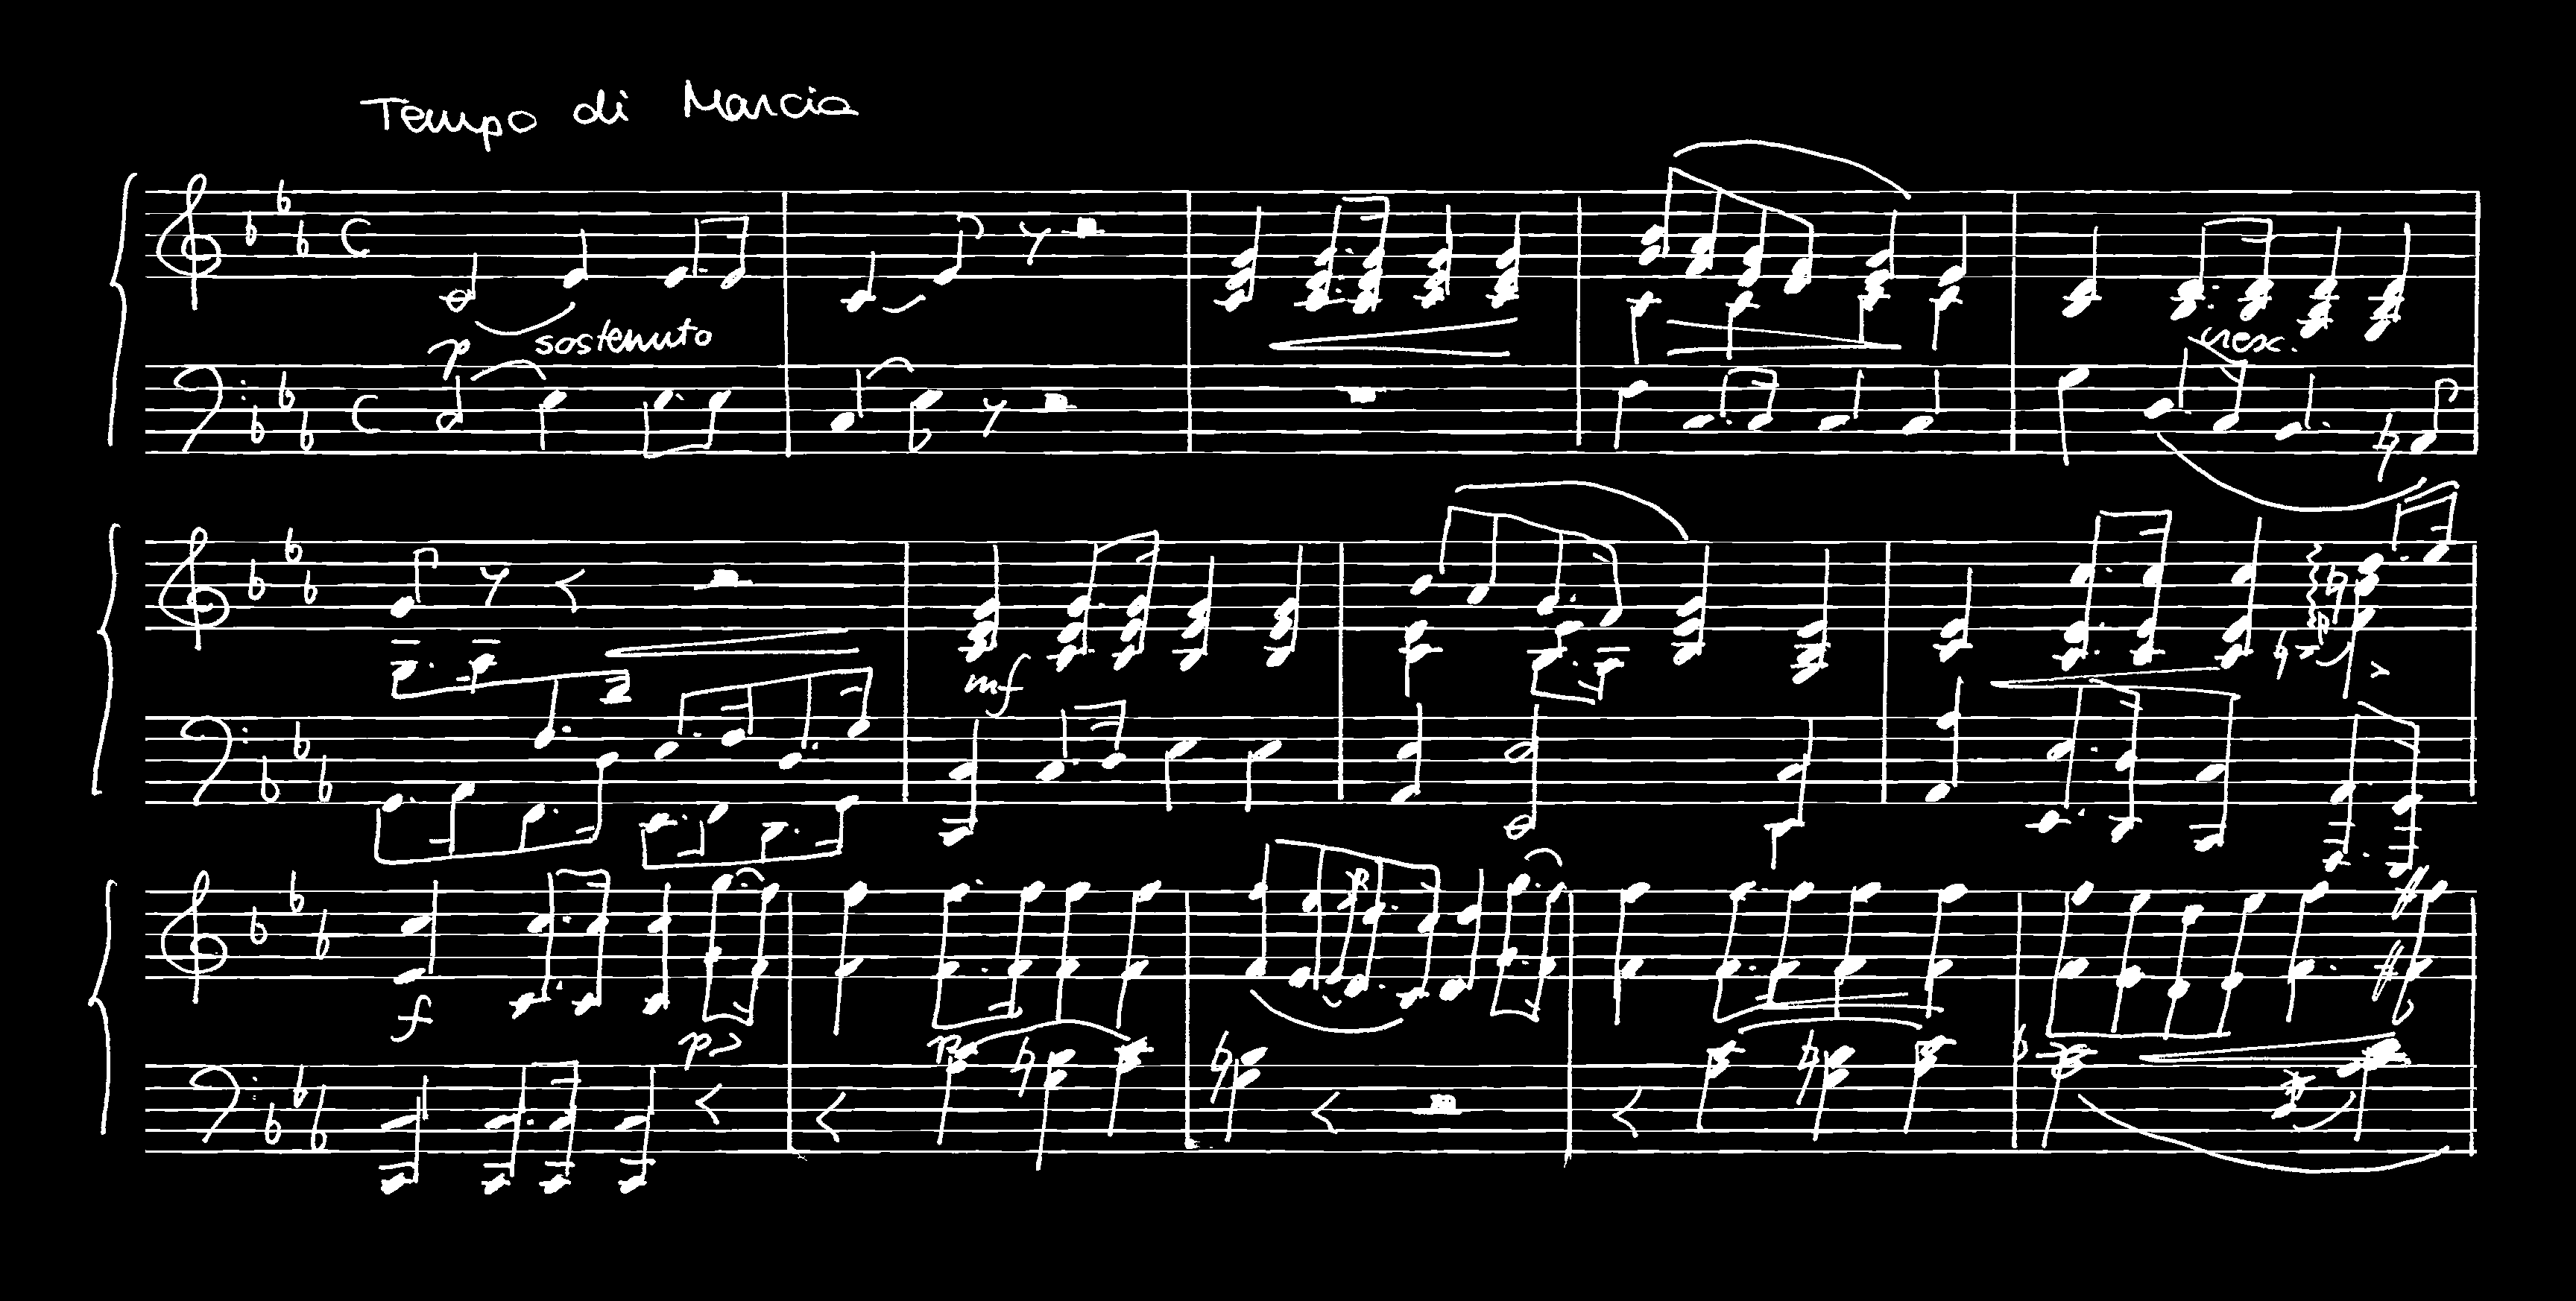 Tempo di Marcia
sostenuto
p
cresc.
mf
f
p
p